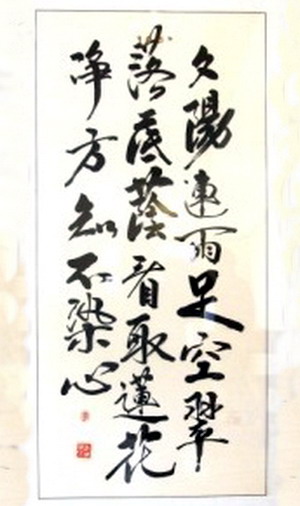 夕陽連雨足空翠
落庭蔭看取蓮花
净方知不染心